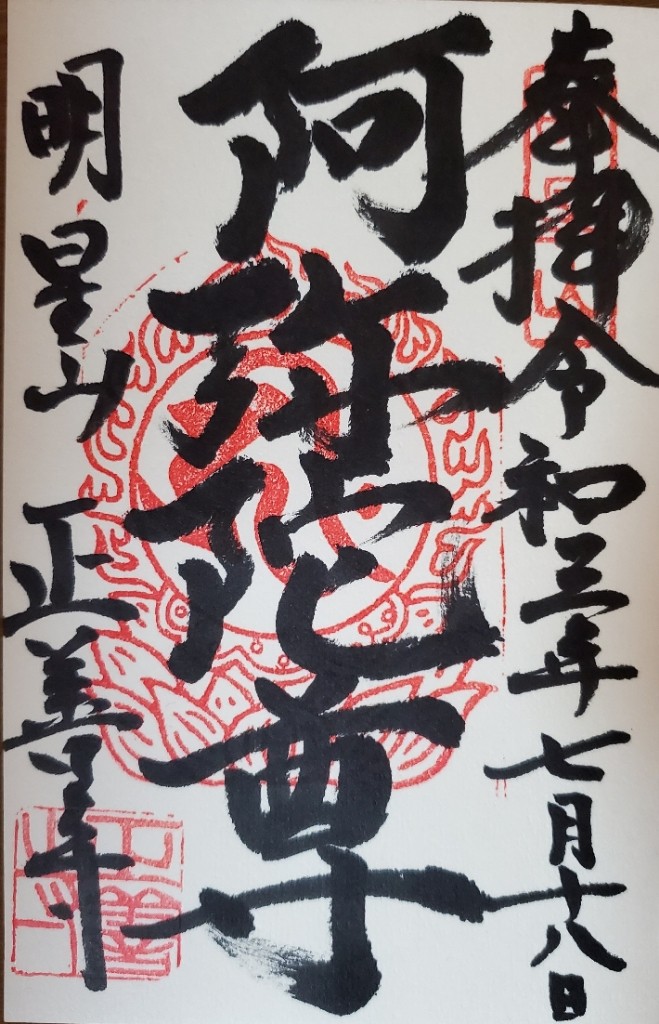 奉拝令和三年七月十八日
阿弥陀尊
明星山
正善寺